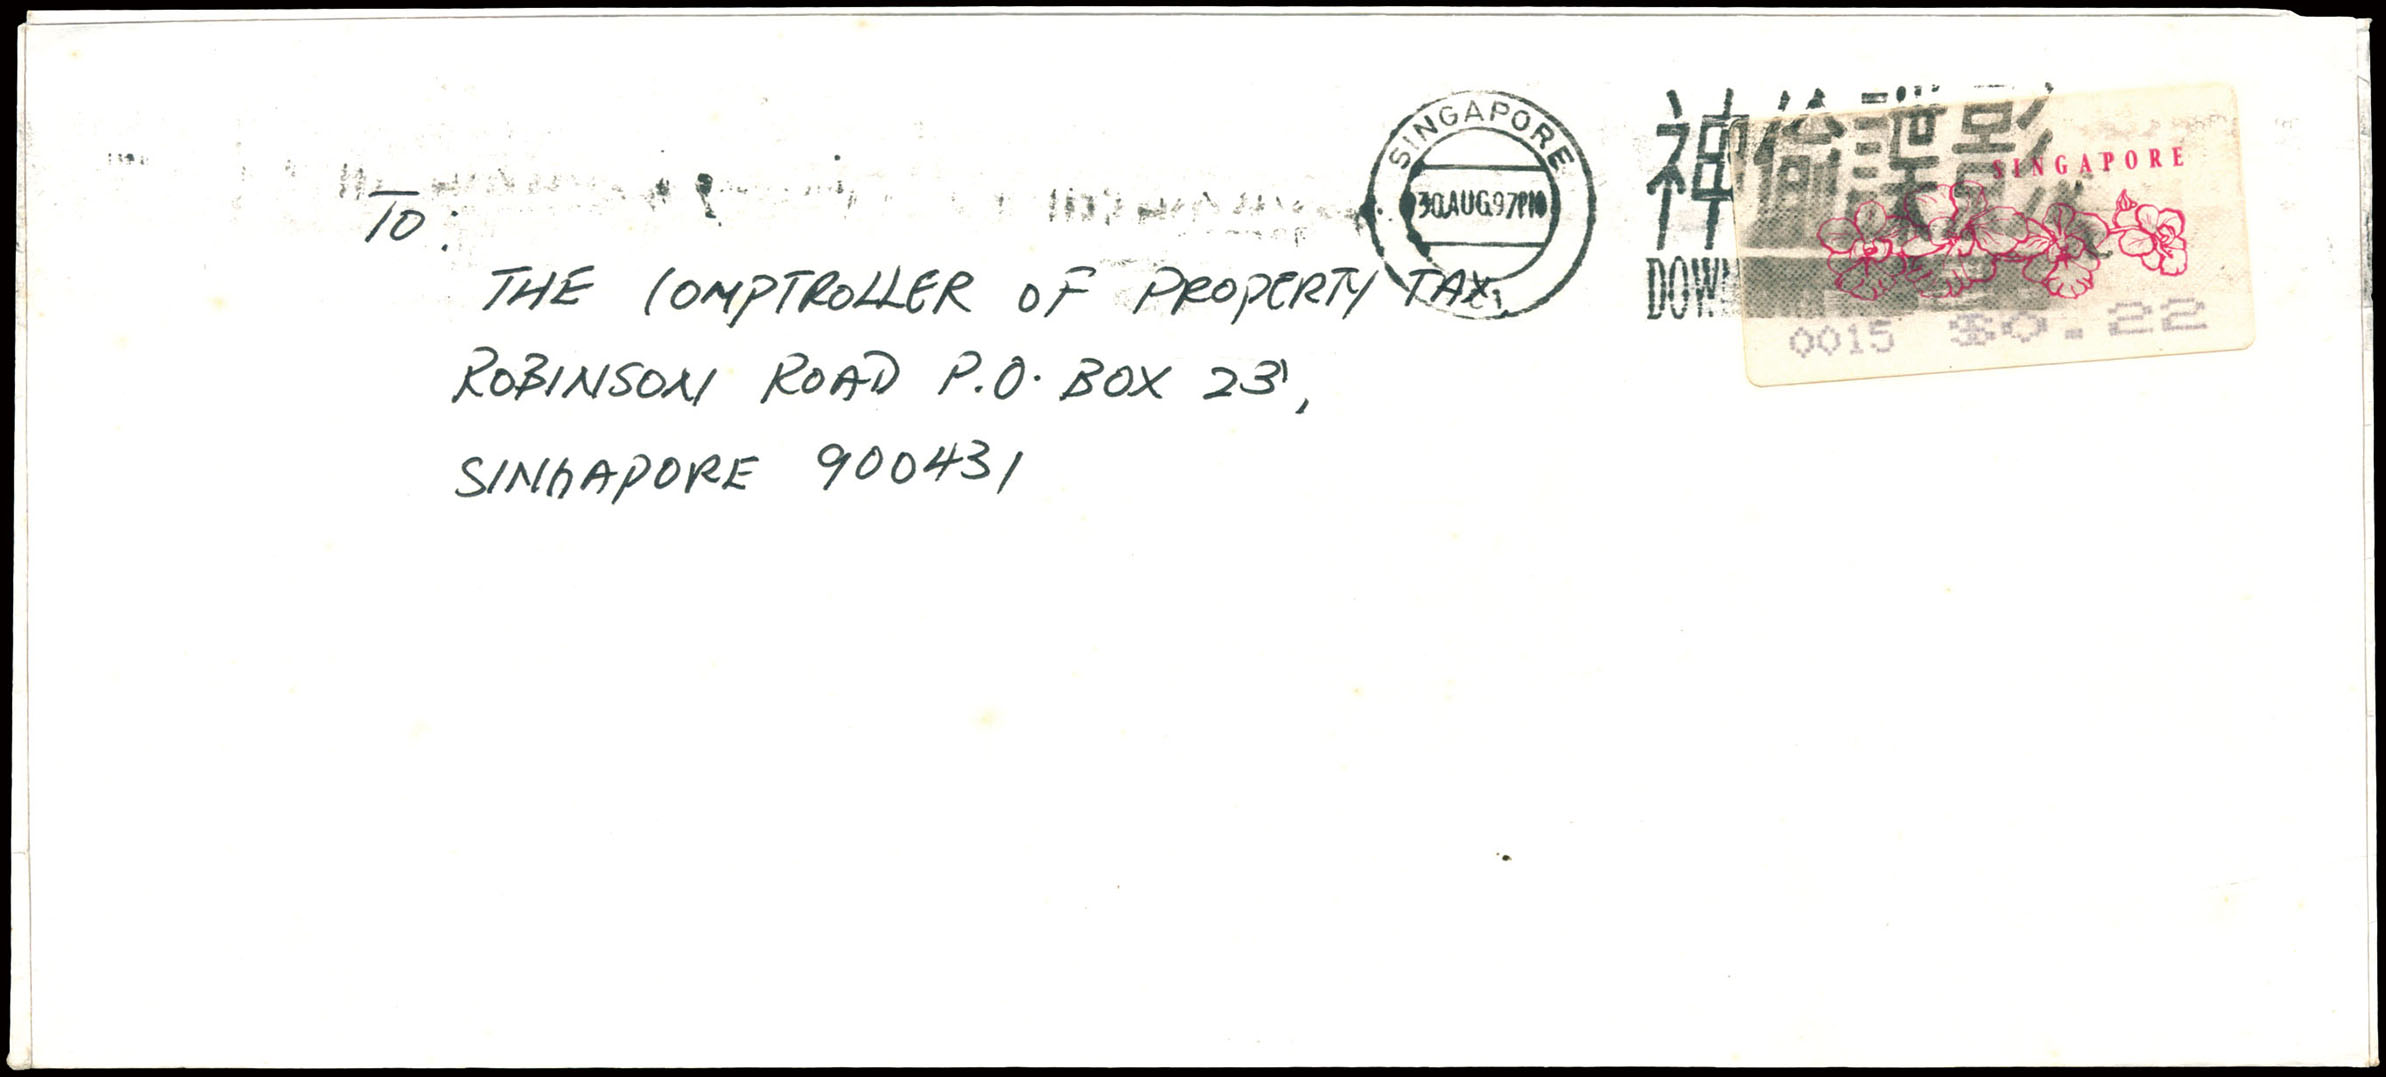 SINGAPORE
30 AUG 97 PM
神偷諜影
DOWN
SINGAPORE
0015 $0.22
TO:
THE COMPTROLLER OF PROPERTY TAX,
ROBINSON ROAD P.O. BOX 23,
SINGAPORE 900431